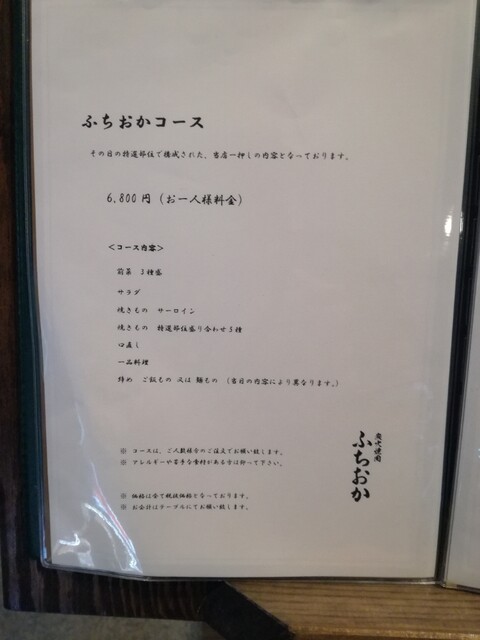 ふちおかコース
その日の特選部位で構成された、当店一押しの内容となっております。
6,800円（お一人様料金）
＜コース内容＞
前菜　3種盛
サラダ
焼きもの　サーロイン
焼きもの　特選部位盛り合わせ5種
口直し
一品料理
締め　ご飯もの 又は 麺もの　（当日の内容により異なります。）
※ コースは、ご人数様分のご注文でお願い致します。
※ アレルギーや苦手な食材がある方は仰って下さい。
※ 価格は全て税抜価格となっております。
※ お会計はテーブルにてお願い致します。
炭火焼肉
ふちおか